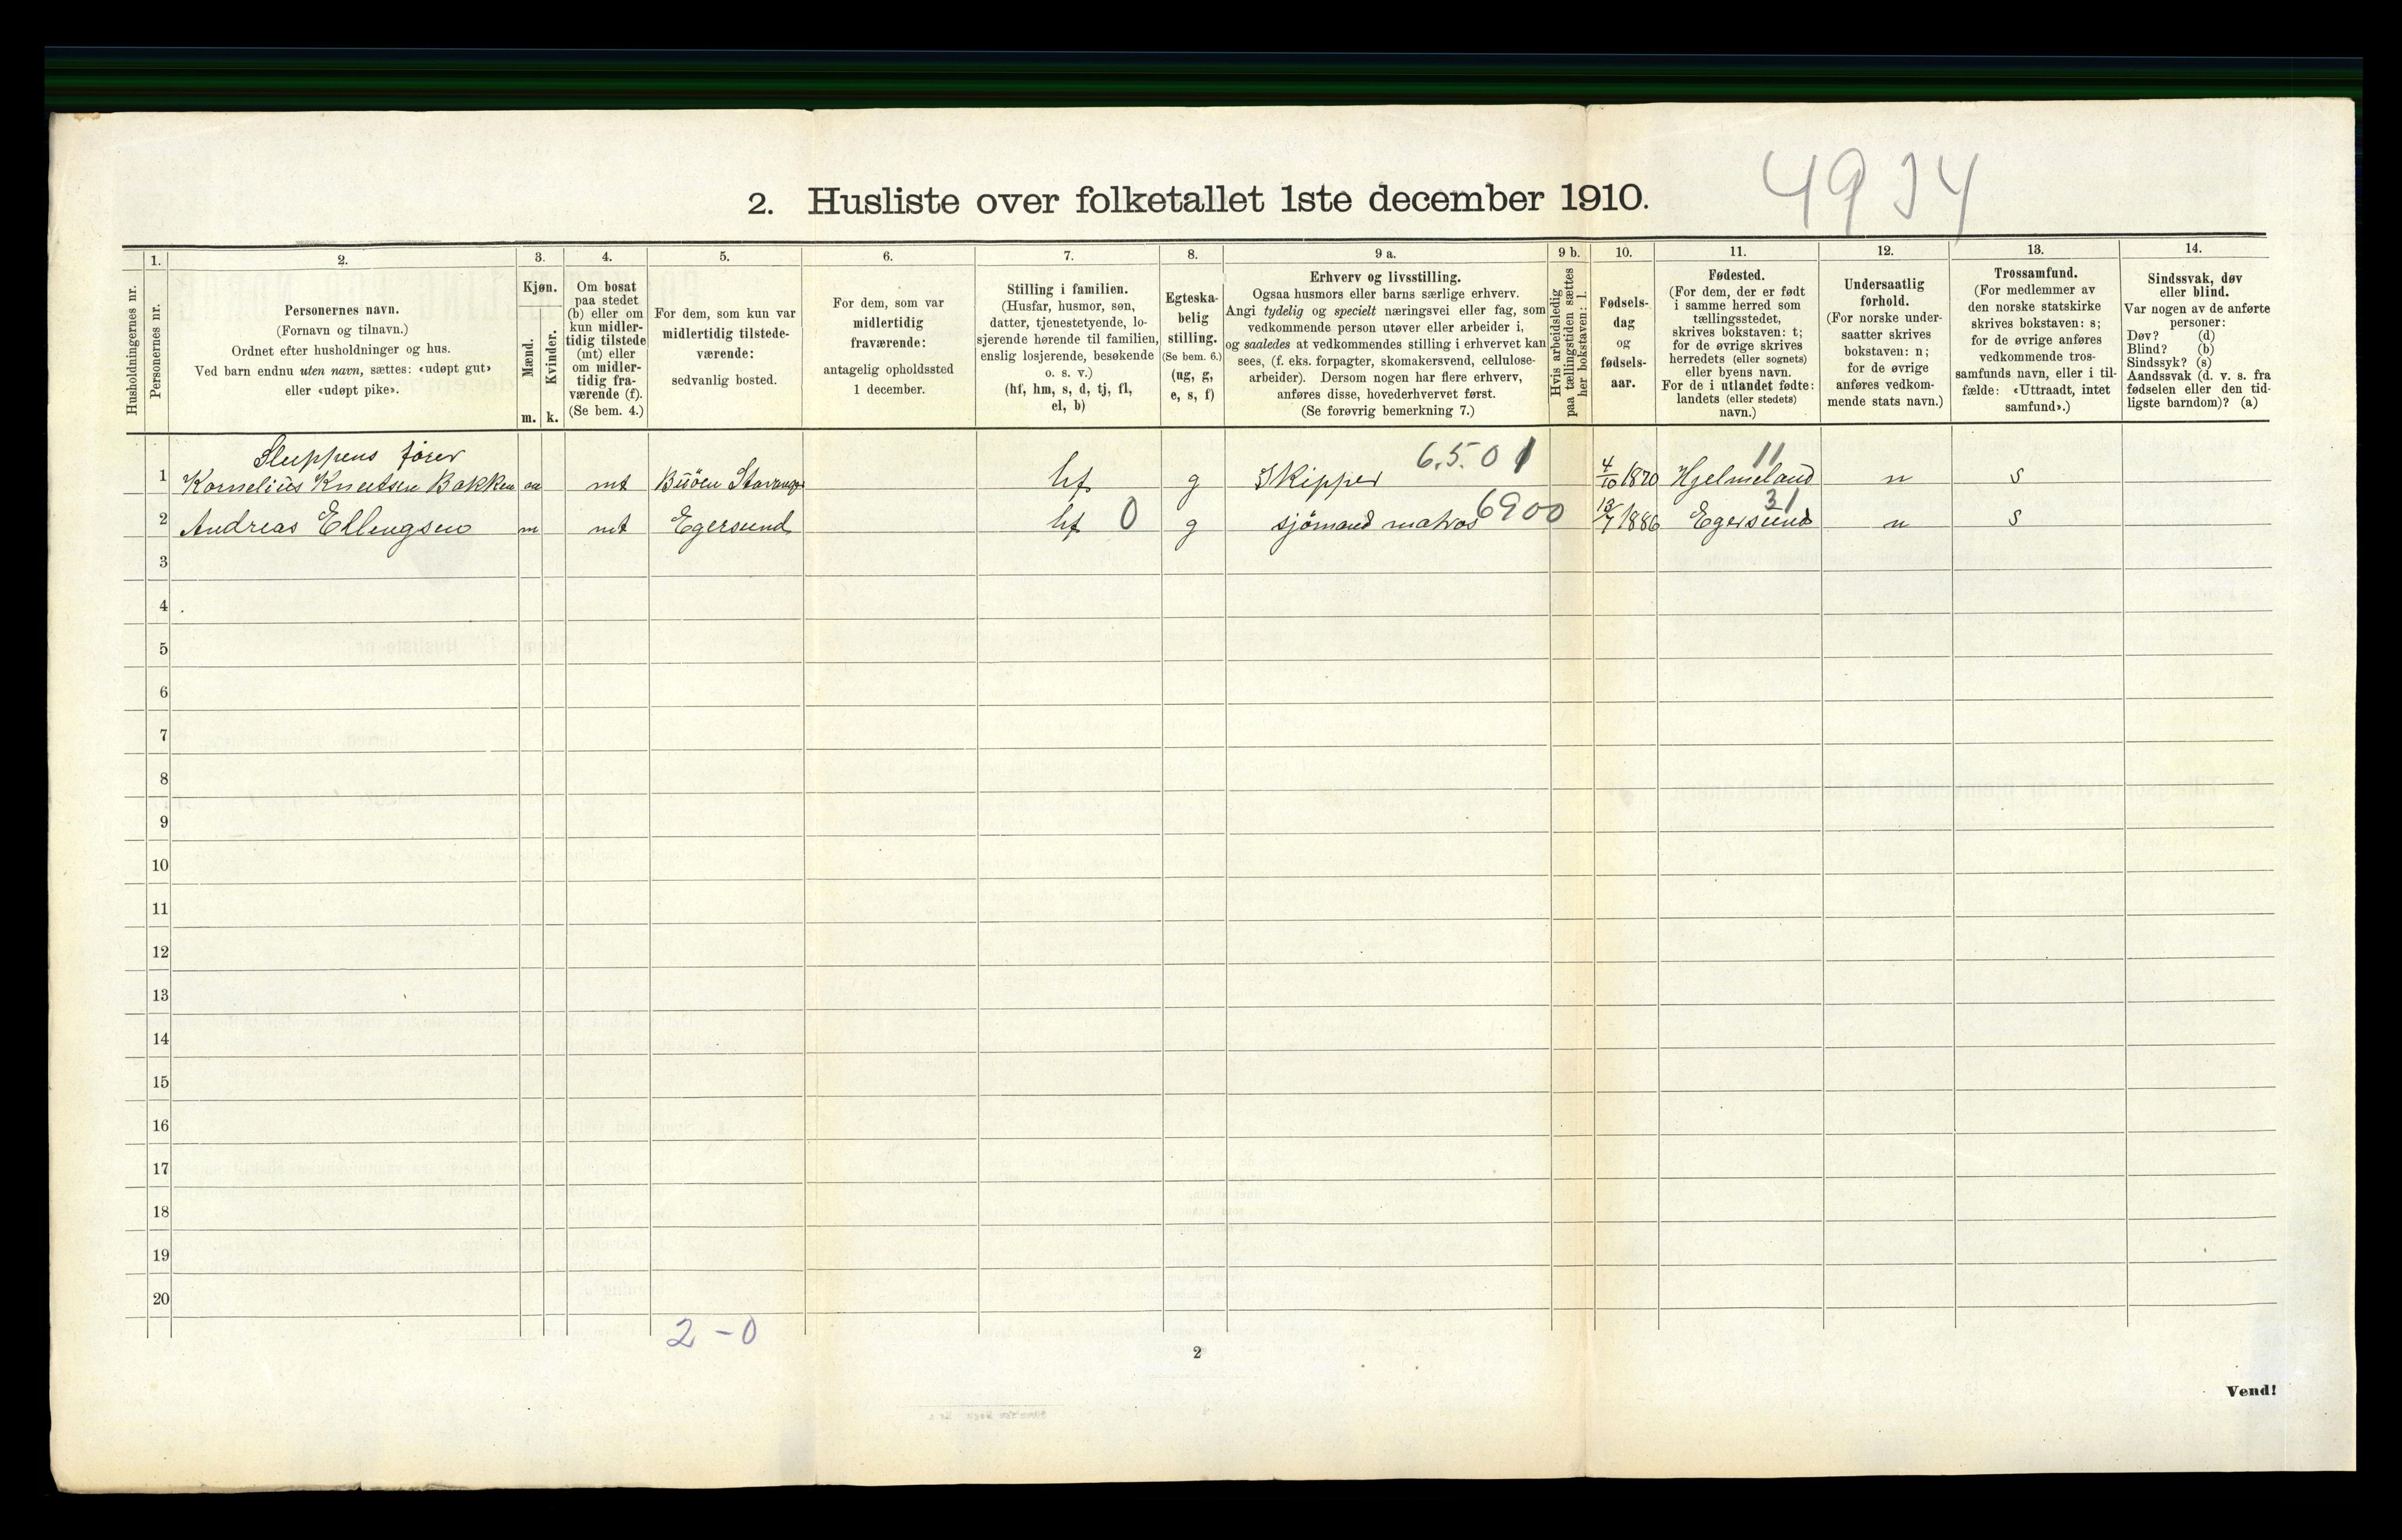 4934
2. Husliste over folketallet 1ste december 1910.
1. 2. 3. 4. 5. 6. 7. 8. 9 a. 9 b. 10. 11. 12. 13. 14.
Husholdningernes nr.
Personernes nr.
Personernes navn.
(Fornavn og tilnavn.)
Ordnet efter husholdninger og hus.
Ved barn endnu uten navn, sættes: «udøpt gut»
eller «udøpt pike».
Kjøn.
Mænd.
Kvinder.
m. k.
Om bosat
paa stedet
(b) eller om
kun midler-
tidig tilstede
(mt) eller
om midler-
tidig fra-
værende (f).
(Se bem. 4.)
For dem, som kun var
midlertidig tilstede-
værende:
sedvanlig bosted.
For dem, som var
midlertidig
fraværende:
antagelig opholdssted
1 december.
Stilling i familien.
(Husfar, husmor, søn,
datter, tjenestetyende, lo-
sjerende hørende til familien,
enslig losjerende, besøkende
o. s. v.)
(hf, hm, s, d, tj, fl,
el, b)
Egteska-
belig
stilling.
(Se bem. 6.)
(ug, g,
e, s, f)
Erhverv og livsstilling.
Ogsaa husmors eller barns særlige erhverv.
Angi tydelig og specielt næringsvei eller fag, som
vedkommende person utøver eller arbeider i,
og saaledes at vedkommendes stilling i erhvervet kan
sees, (f. eks. forpagter, skomakersvend, cellulose-
arbeider). Dersom nogen har flere erhverv,
anføres disse, hovederhvervet først.
(Se forøvrig bemerkning 7.)
Hvis arbeidsledig
paa tællingstiden sættes
her bokstaven: l.
Fødsels-
dag
og
fødsels-
aar.
Fødested.
(For dem, der er født
i samme herred som
tællingsstedet,
skrives bokstaven: t;
for de øvrige skrives
herredets (eller sognets)
eller byens navn.
For de i utlandet fødte:
landets (eller stedets)
navn.)
Undersaatlig
forhold.
(For norske under-
saatter skrives
bokstaven: n;
for de øvrige
anføres vedkom-
mende stats navn.)
Trossamfund.
(For medlemmer av
den norske statskirke
skrives bokstaven: s;
for de øvrige anføres
vedkommende tros-
samfunds navn, eller i til-
fælde: «Uttraadt, intet
samfund».)
Sindssvak, døv
eller blind.
Var nogen av de anførte
personer:
Døv? (d)
Blind? (b)
Sindssyk? (s)
Aandssvak (d. v. s. fra
fødselen eller den tid-
ligste barndom)? (a)
Sluppens fører 6.5.01 11
1 Kornelius Knutsen Bakken m mt Buöen Stavanger hf g Skipper 4/10 1870 Hjelmeland n s
2 Andreas Ellingsen m mt Egersund hf 0 g sjömand matros 6900 13/7 1886 Egersund 31 n s
3
4
5
6
7
8
9
10
11
12
13
14
15
16
17
18
19
20
2 - 0
2
Vend!